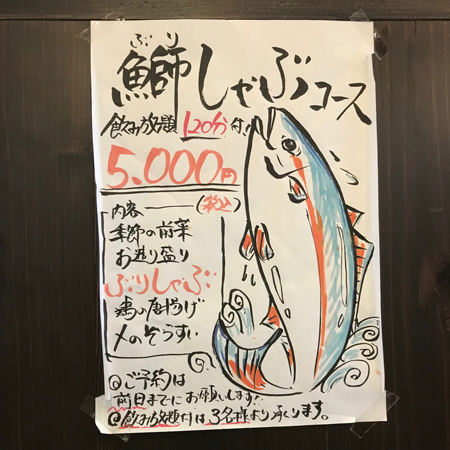 ぶり
鰤しゃぶコース
飲み放題120分付
5.000円
(税込)
内容
季節の前菜
お造り盛り
ぶりしゃぶ
鶏の唐揚げ
〆のぞうすい
@ご予約は
前日までにお願いします!
@飲み放題付は3名様より承ります。